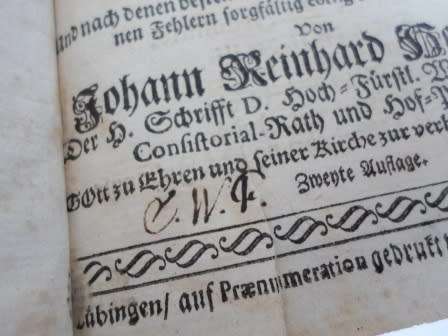 und nach denen
nen Fehlern sorgfältig
Von
Johann Reinhard
Der H. Schrifft D. Hoch-Fürstl.
Consistorial-Rath und Hof-
GOtt zu Ehren und seiner Kirche zur
Zweyte Auflage.
Tübingen/ auf Prænumeration gedruckt